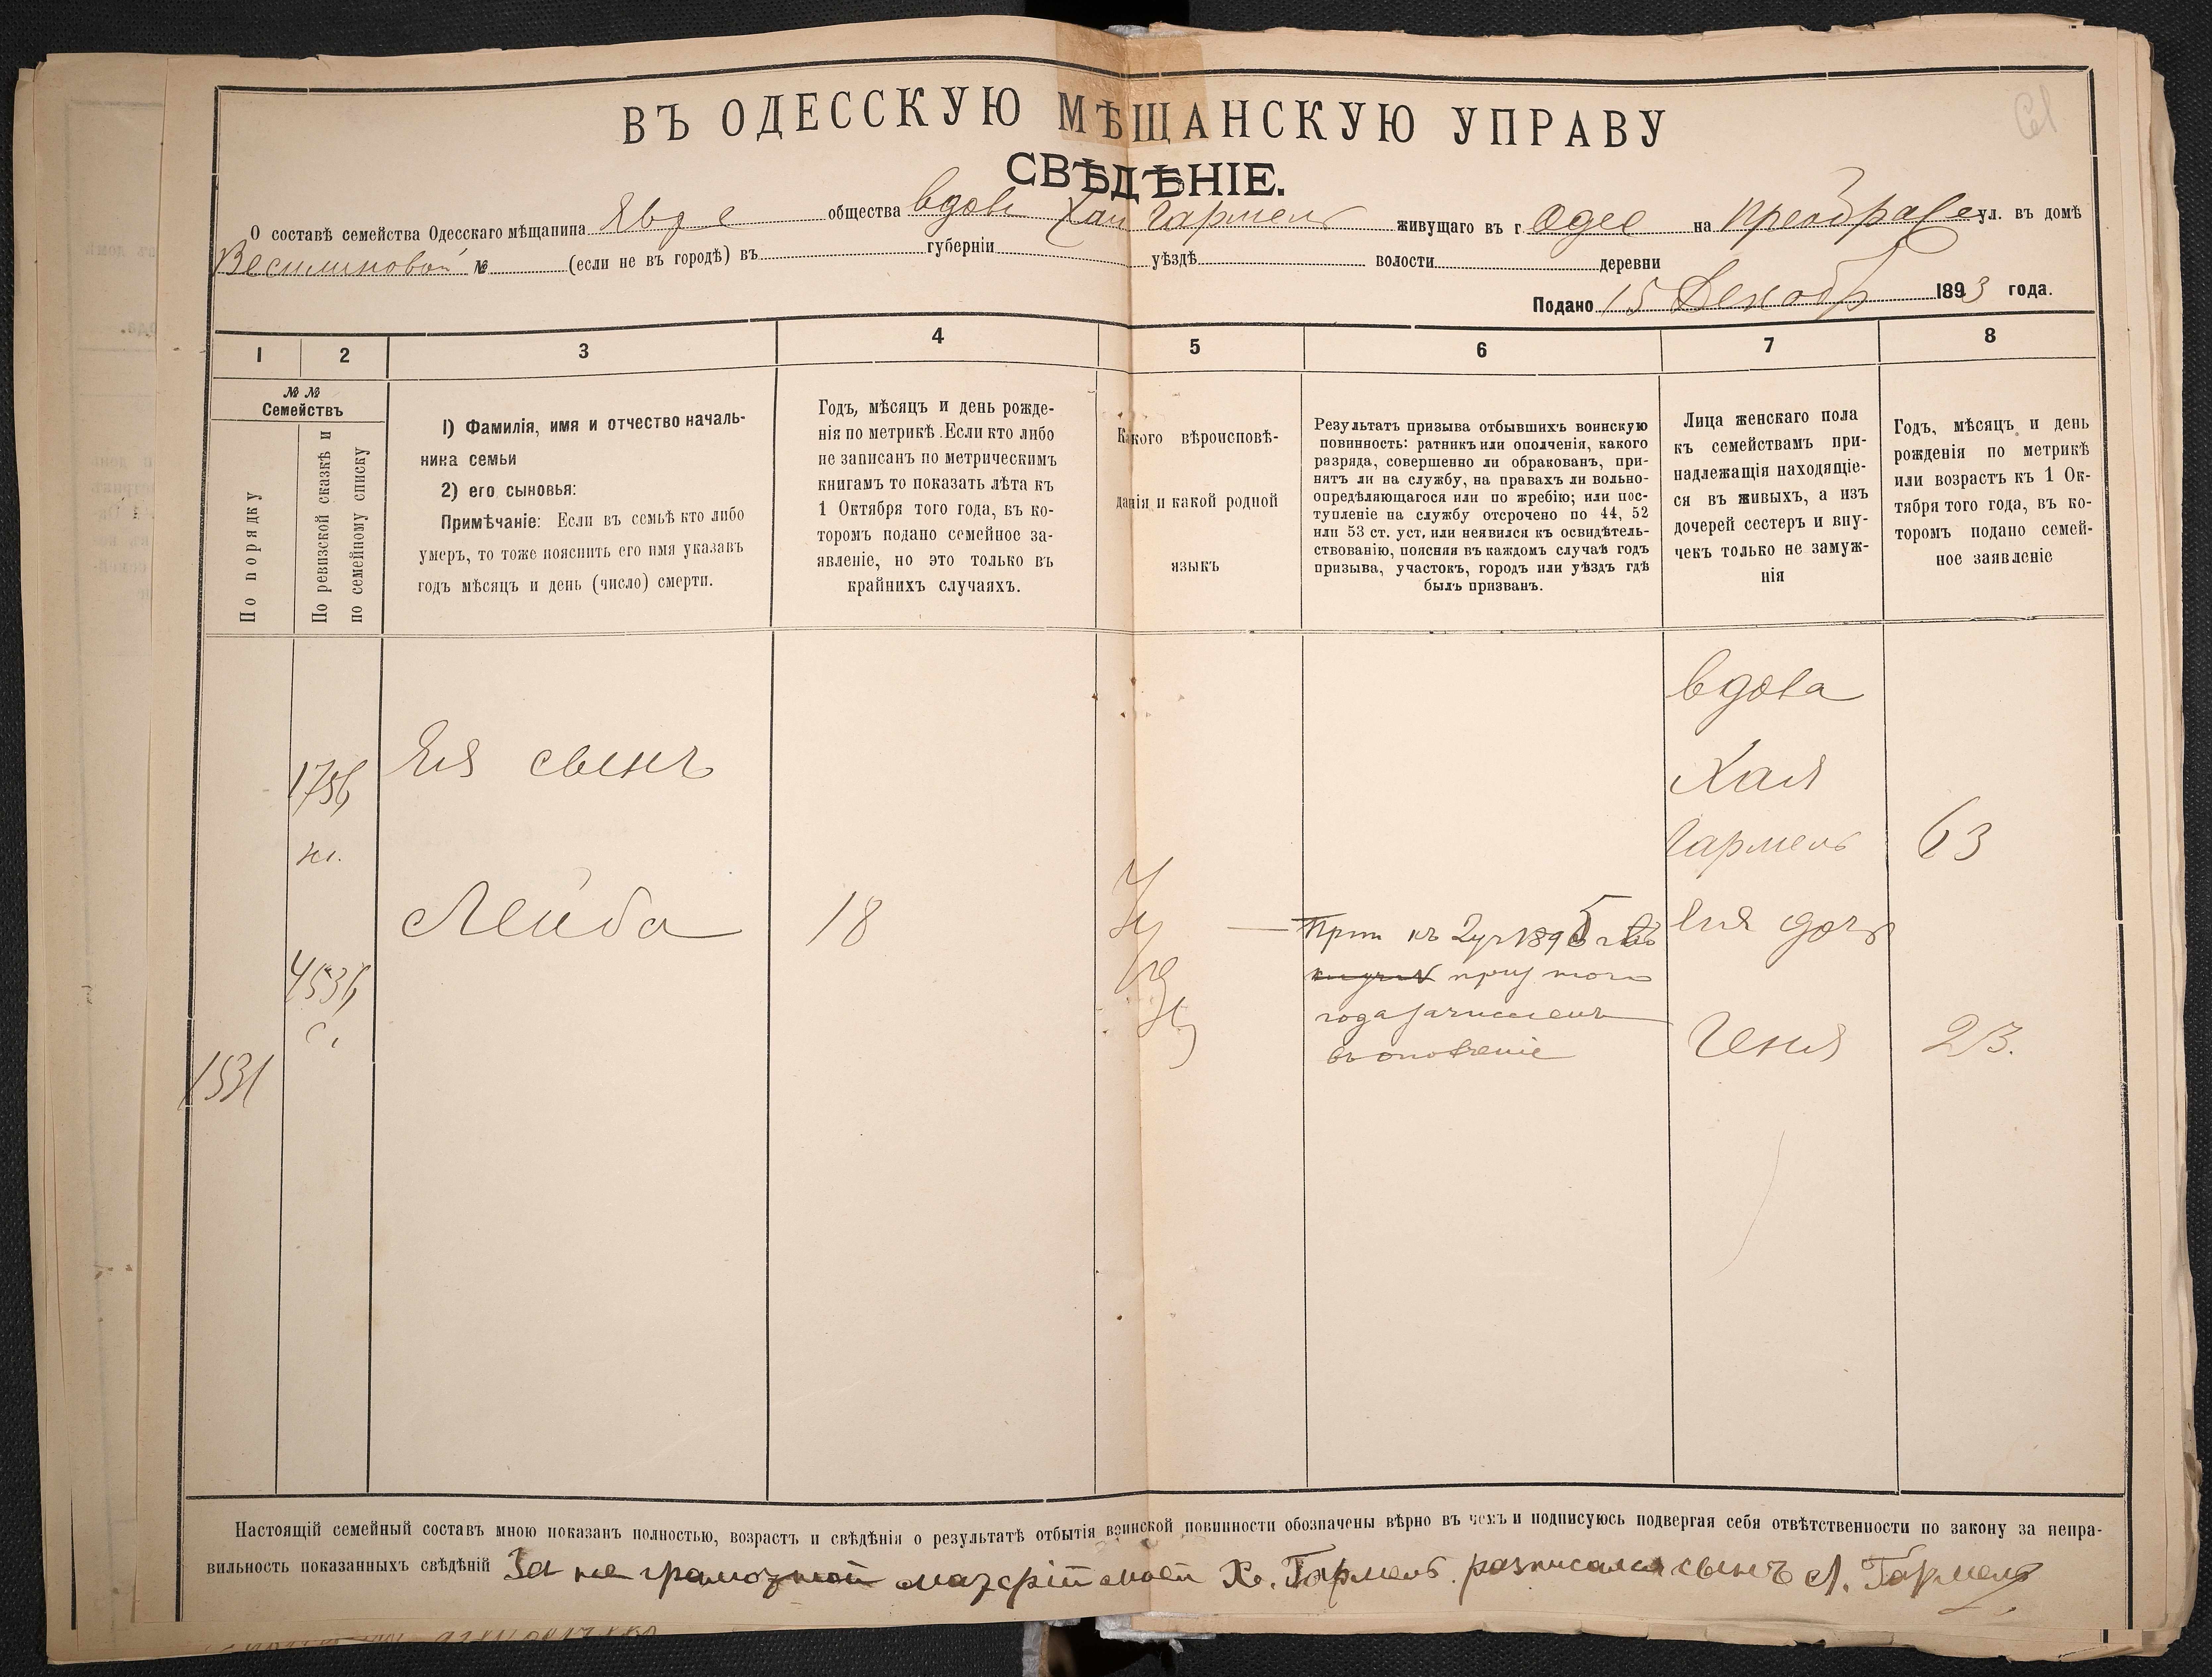 ВЪ ОДЕССКУЮ МѢЩАНСКУЮ УПРАВУ
СВѢДѢНІЕ.
О составѣ семейства Одесскаго мѣщанина Явре общества вдовы Хаи Гармель живущаго въ г Одес на Преображе ул. въ домѣ
№ (если не въ городѣ) въ губерніи уѣздѣ волости деревни
Подано 15 Декабр 1893 года.
1 2 3 4 5 6 7 8
№ №
Семействъ
По порядку
По ревизской сказкѣ и
по семейному списку
1) Фамилія, имя и отчество началь-
ника семьи
2) его сыновья:
Примѣчаніе: Если въ семьѣ кто либо
умеръ, то тоже пояснить его имя указавъ
годъ мѣсяцъ и день (число) смерти.
Годъ, мѣсяцъ и день рожде-
нія по метрикѣ. Если кто либо
не записанъ по метрическимъ
книгамъ то показать лѣта къ
1 Октября того года, въ ко-
торомъ подано семейное за-
явленіе, но это только въ
крайнихъ случаяхъ.
Какого вѣроисповѣ-
данія и какой родной
языкъ
Результатъ призыва отбывшихъ воинскую
повинность: ратникъ или ополченія, какого
разряда, совершенно ли обракованъ, при-
нятъ ли на службу, на правахъ ли вольно-
опредѣляющагося или по жребію; или пос-
тупленіе на службу отсрочено по 44, 52
или 53 ст. уст, или неявился къ освидѣтель-
ствованію, поясняя въ каждомъ случаѣ годъ
призыва, участокъ, городъ или уѣздъ гдѣ
былъ призванъ.
Лица женскаго пола
къ семействамъ при-
надлежащія находящіе-
ся въ живыхъ, а изъ
дочерей сестеръ и вну-
чекъ только не замуж-
нія
Годъ, мѣсяцъ и день
рожденія по метрикѣ
или возрастъ къ 1 Ок-
тября того года, въ ко-
торомъ подано семей-
ное заявленіе
1531
Ея сынъ
Лейба
18
года зачисленъ
въ ополченіе
вдова
Хая
Гармель
63
Ея дочь
Геня
23.
Настоящій семейный составъ мною показанъ полностью, возрастъ и свѣдѣнія о результатѣ отбытія воинской повинности обозначены вѣрно въ чемъ и подписуюсь подвергая себя отвѣтственности по закону за непра-
вильность показанныхъ свѣдѣній За не грамотной матерій моей Х. Гармель росписался сынъ Л. Гармель